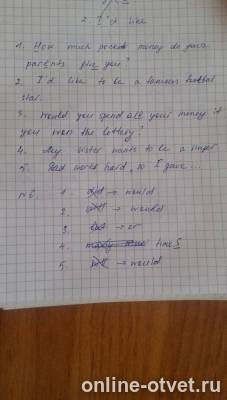 2. I'd like
1. How much pocket money do your
parents give you?
2. I'd like to be a famous football
star.
3. Would you spend all your money if
you won the lottery?
4. My sister wants to be a singer
5. Dad works hard, so I gave...
№6. 1. → would
2. will → would
3. → or
4. times
5. will → would
online-otvet.ru